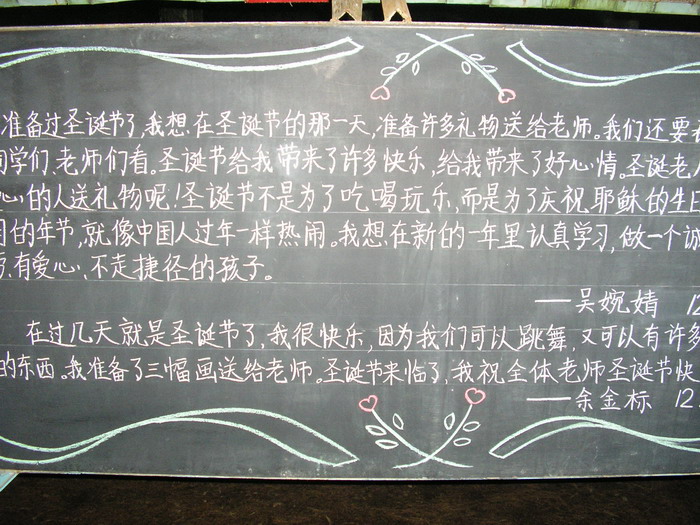 准备过圣诞节了,我想在圣诞节的那一天,准备许多礼物送给老师。我们还要
同学们、老师们看。圣诞节给我带来了许多快乐,给我带来了好心情。圣诞老
心的人送礼物呢!圣诞节不是为了吃喝玩乐,而是为了庆祝耶稣的生日
的年节,就像中国人过年一样热闹。我想在新的一年里认真学习,做一个诚
有爱心、不走捷径的孩子。
——吴婉婧 12
在过几天就是圣诞节了,我很快乐,因为我们可以跳舞,又可以有许多
的东西。我准备了三幅画送给老师。圣诞节来临了,我祝全体老师圣诞节快
——余金标 12.